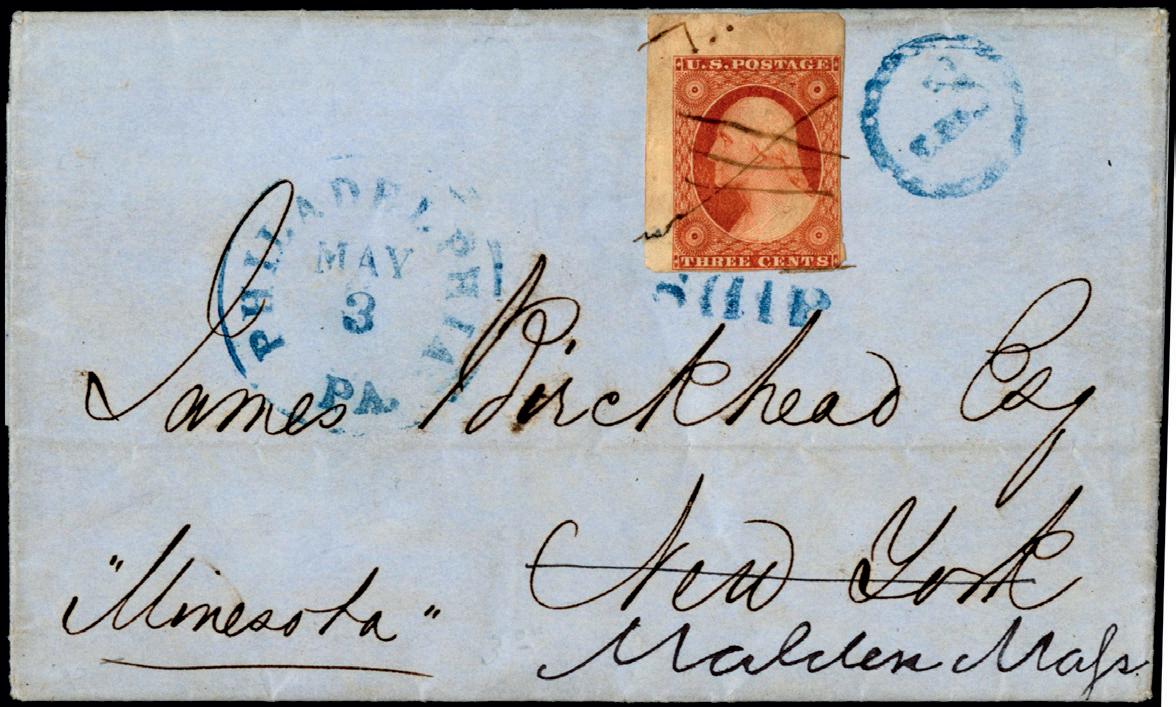 U.S. POSTAGE
THREE CENTS
PHILADELPHIA
MAY
3
PA.
SHIP
James Birckhead Esq
New York
"Minesota"
Malden Mass